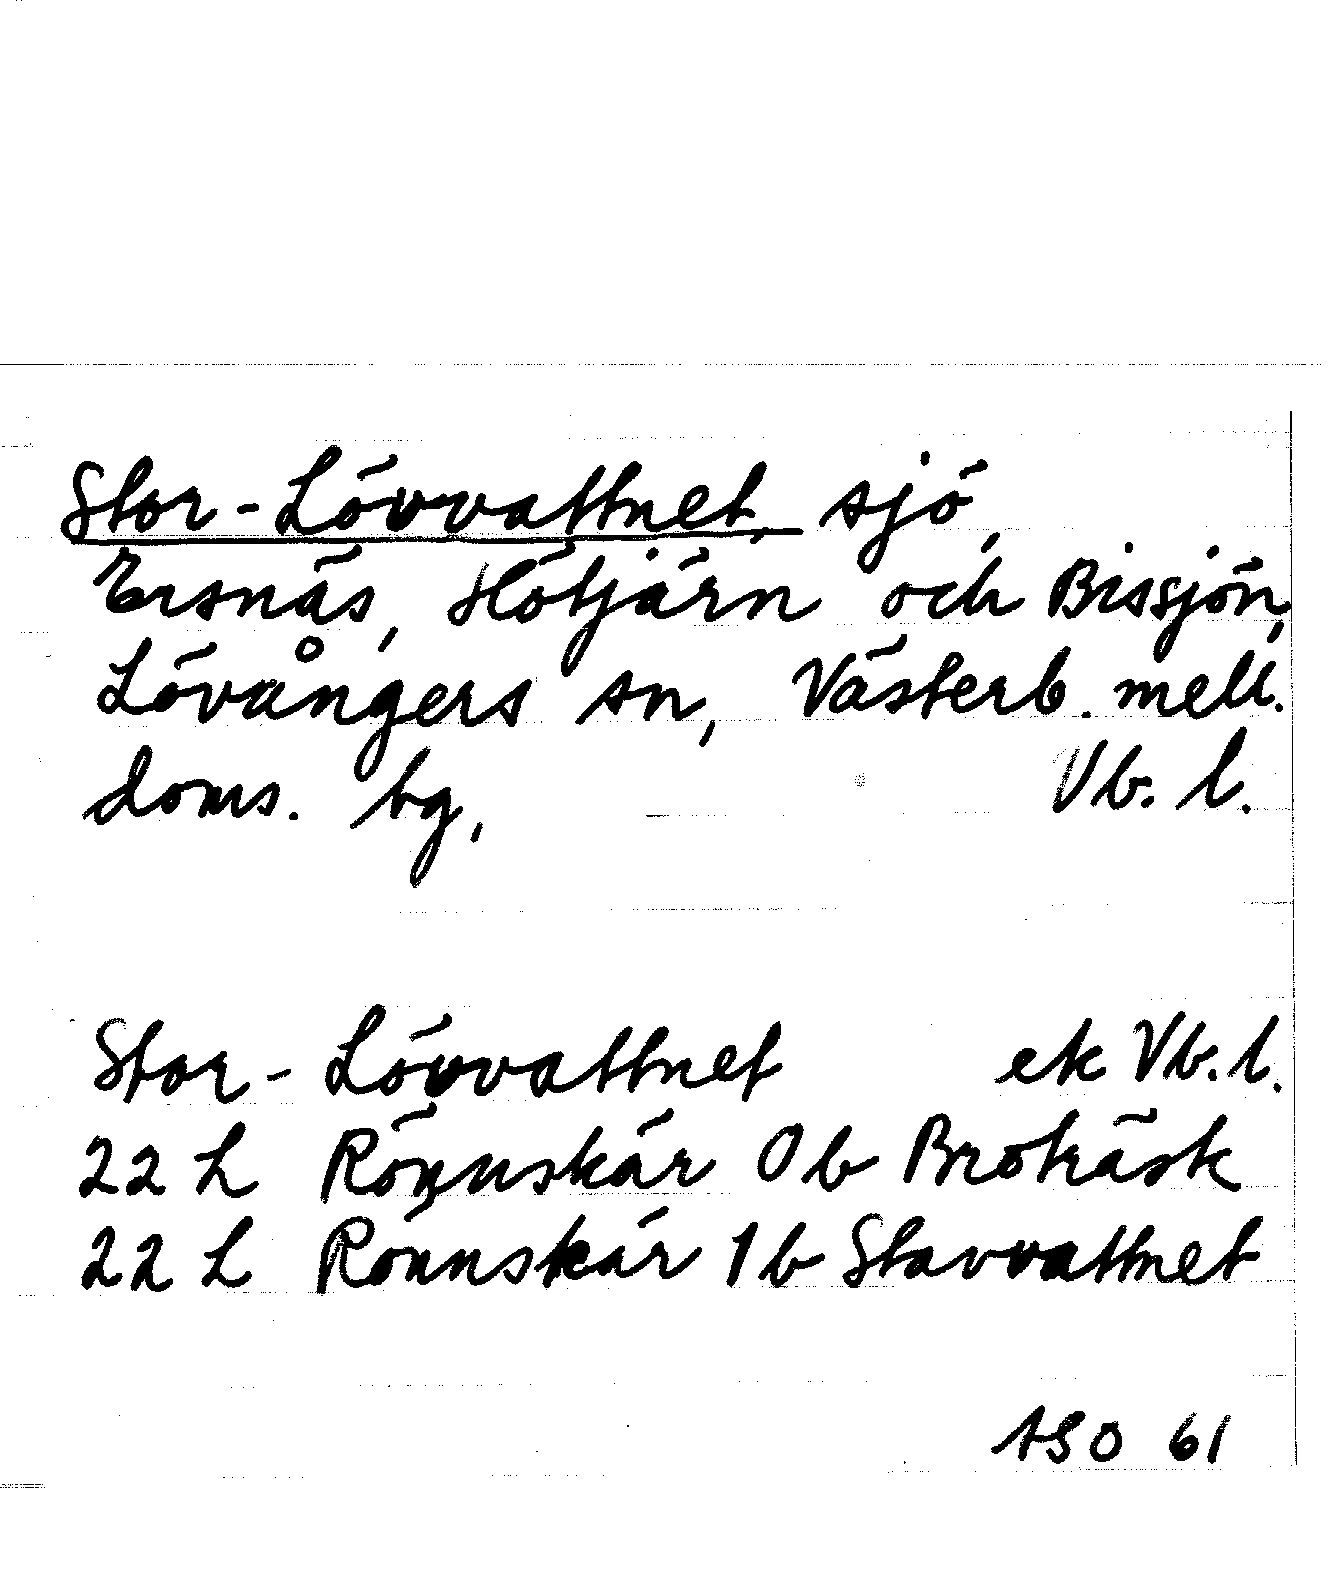 Stor-Lövvattnet, sjö,
Ersnäs, Hötjärn och Bissjön,
Lövångers sn, Västerb. mell.
doms. bg, Vb. l.
Stor-Lövvattnet ek Vb. l.
22 L Rönnskär 0b Broträsk
22 L Rönnskär 1b Stavvattnet
ASO 61